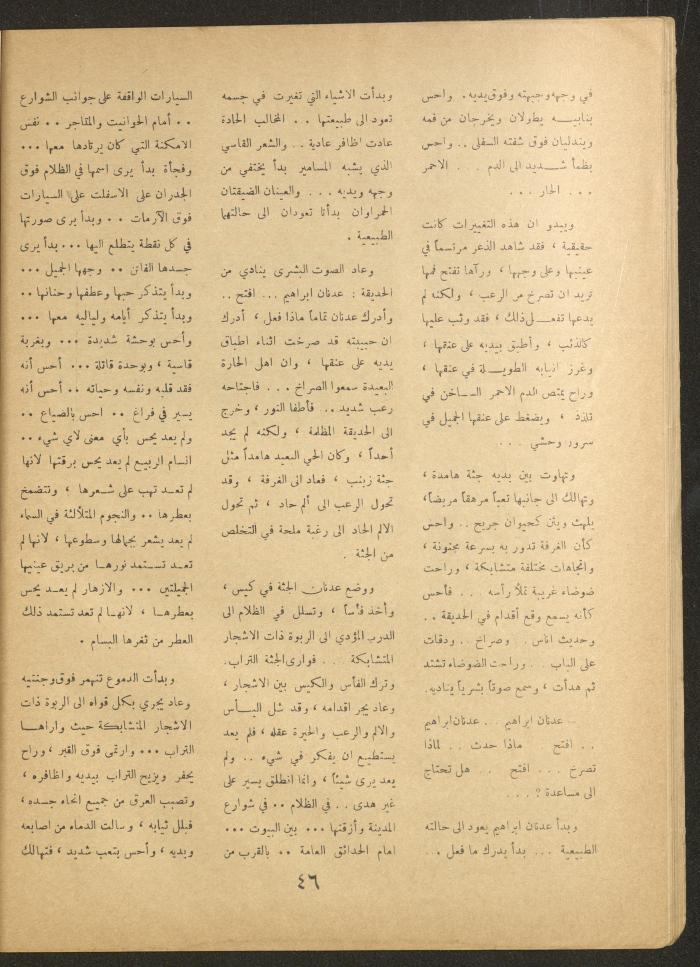 في وجهه وجبهته وفوق يديه. واحس
بنابيـه يطولان ويخرجان من فمه
ويتدليان فوق شفته السفلى .. واحس
بظمأ شـديد الى الدم ... الاحمر
... الحار ...
ويبدو ان هذه التغييرات كانت
حقيقية ، فقد شاهد الذعر مرتسماً في
عينيها وعلى وجهها ، ورآها تفتح فمها
تريد ان تصرخ من الرعب ، ولكنه لم
يدعها تفعـل ذلك ، فقد وثب عليها
كالذئب ، وأطبق بيديه على عنقها ،
وغرز انيابه الطويـلة في عنقها ،
وراح يمتص الدم الاحمر السـاخن في
تلذذ ، ويضغط على عنقها الجميل في
سرور وحشي ...
وتهاوت بين يديه جثة هامدة ،
وتهالك الى جانبها تعباً مرهقاً مريضاً،
يلهث ويئن كحيوان جريح .. واحس
كأن الغرفة تدور به بسرعة مجنونة ،
واتجاهات مختلفة متشابكة ، وراحت
ضوضاء غريبة تملأ رأسه ... فأحس
كأنه يسمع وقع أقدام في الحديقة ..
وحديث اناس .. وصراخ .. ودقات
على الباب .. وراحت الضوضاء تشتد
ثم هدأت ، وسمع صوتاً بشرياً يناديه.
– عدنان ابراهيم .. عدنان ابراهيم
.. افتح ماذا حدث .. لماذا
تصرخ ... افتح .. هل تحتاج
الى مساعدة ? ...
وبدأ عدنان ابراهيم يعود الى حالته
الطبيعية ... بدأ يدرك ما فعل ...
وبدأت الاشياء التي تغيرت في جسمه
تعود الى طبيعتها .. المخالب الحادة
عادت اظافر عادية .. والشعر القاسي
الذي يشبه المسامير بدأ يختفي من
وجهه ويديه ... والعينان الضيقتان
الحمراوان بدأتا تعودان الى حالتهما
الطبيعية .
وعاد الصوت البشرى ينادي من
الحديقة : عدنان ابراهيم ... افتح ..
وأدرك عدنان تماماً ماذا فعل ، أدرك
ان حبيبته قد صرخت اثناء اطباق
يديه على عنقها ، وان اهل الحارة
البعيدة سمعوا الصراخ ... فاجتاحه
رعب شديد .. فأطفا النور ، وخرج
الى الحديقة المظلمة ، ولكنه لم يجد
أحداً ، وكان الحي البعيد هامداً مثل
جثة زينب ، فعاد الى الغرفة ، وقد
تحول الرعب الى ألم حاد ، ثم تحول
الالم الحاد الى رغبة ملحة في التخلص
من الجثة .
ووضع عدنان الجثة في كيس ،
وأخذ فأساً ، وتسلل في الظلام الى
الدرب المؤدي الى الربوة ذات الاشجار
المتشابكة ... فوارى الجثة التراب.
وترك الفأس والكيس بين الاشجار ،
وعاد يجر اقدامه ، وقد شل اليـأس
والالم والرعب والحيرة عقله ، فلم يعد
يستطيـع ان يفكر في شيء .. ولم
يعد يرى شيئاً ، وانما انطلق يسير على
غير هدى .. في الظلام .. في شوارع
المدينة وأزقتها ... بين البيوت ...
امام الحدائق العامة .. بالقرب من
السيارات الواقفة على جوانب الشوارع
.. أمام الحوانيت والمتاجر .. نفس
الامكنة التي كان يرتادها معها ...
وفجأة بدأ يرى اسمها في الظلام فوق
الجدران على الاسفلت على السيارات
فوق الآرمات .. وبدأ يرى صورتها
في كل نقطة يتطلع اليها ... بدأ يرى
جسدها الفاتن .. وجهها الجميل ...
وبدأ يتذكر حبها وعطفها وحنانها ..
وبدأ يتذكر أيامه ولياليه معها ...
وأحس بوحشة شديدة ... وبغربة
قاسية ، وبوحدة قاتلة ... أحس أنه
فقد قلبه ونفسه وحياته .. أحس أنه
يسير في فراغ .. احس بالضياع ..
ولم يعد يحس بأي معنى لاي شيء ..
انسام الربيـع لم يعد يحس برقتها لانها
لم تعـد تهب على شـعرها ، وتتضمخ
بعطرها .. والنجوم المتلألئة في السماء
لم يعد يشعر بجمالها وسطوعها ، لانها لم
تعـد تسـتمد نورهـا من بريق عينيها
الجميلتين ... والازهار لم يعـد يحس
بعطرهـا ، لانهـا لم تعد تستمد ذلك
العطر من ثغرها البسام .
وبدأت الدموع تنهمر فوق وجنتيه
وعاد يجري بكل قواه الى الربوة ذات
الاشجار المتشابكة حيث واراهـا
التراب ... وارتمى فوق القبر ، وراح
يحفر ويزيح التراب بيديه واظافره ،
وتصبب العرق من جميع انحاء جسده ،
فبلل ثيابه ، وسالت الدماء من اصابعه
ويديه ، وأحس بتعب شديد ، فتهالك
٤٦